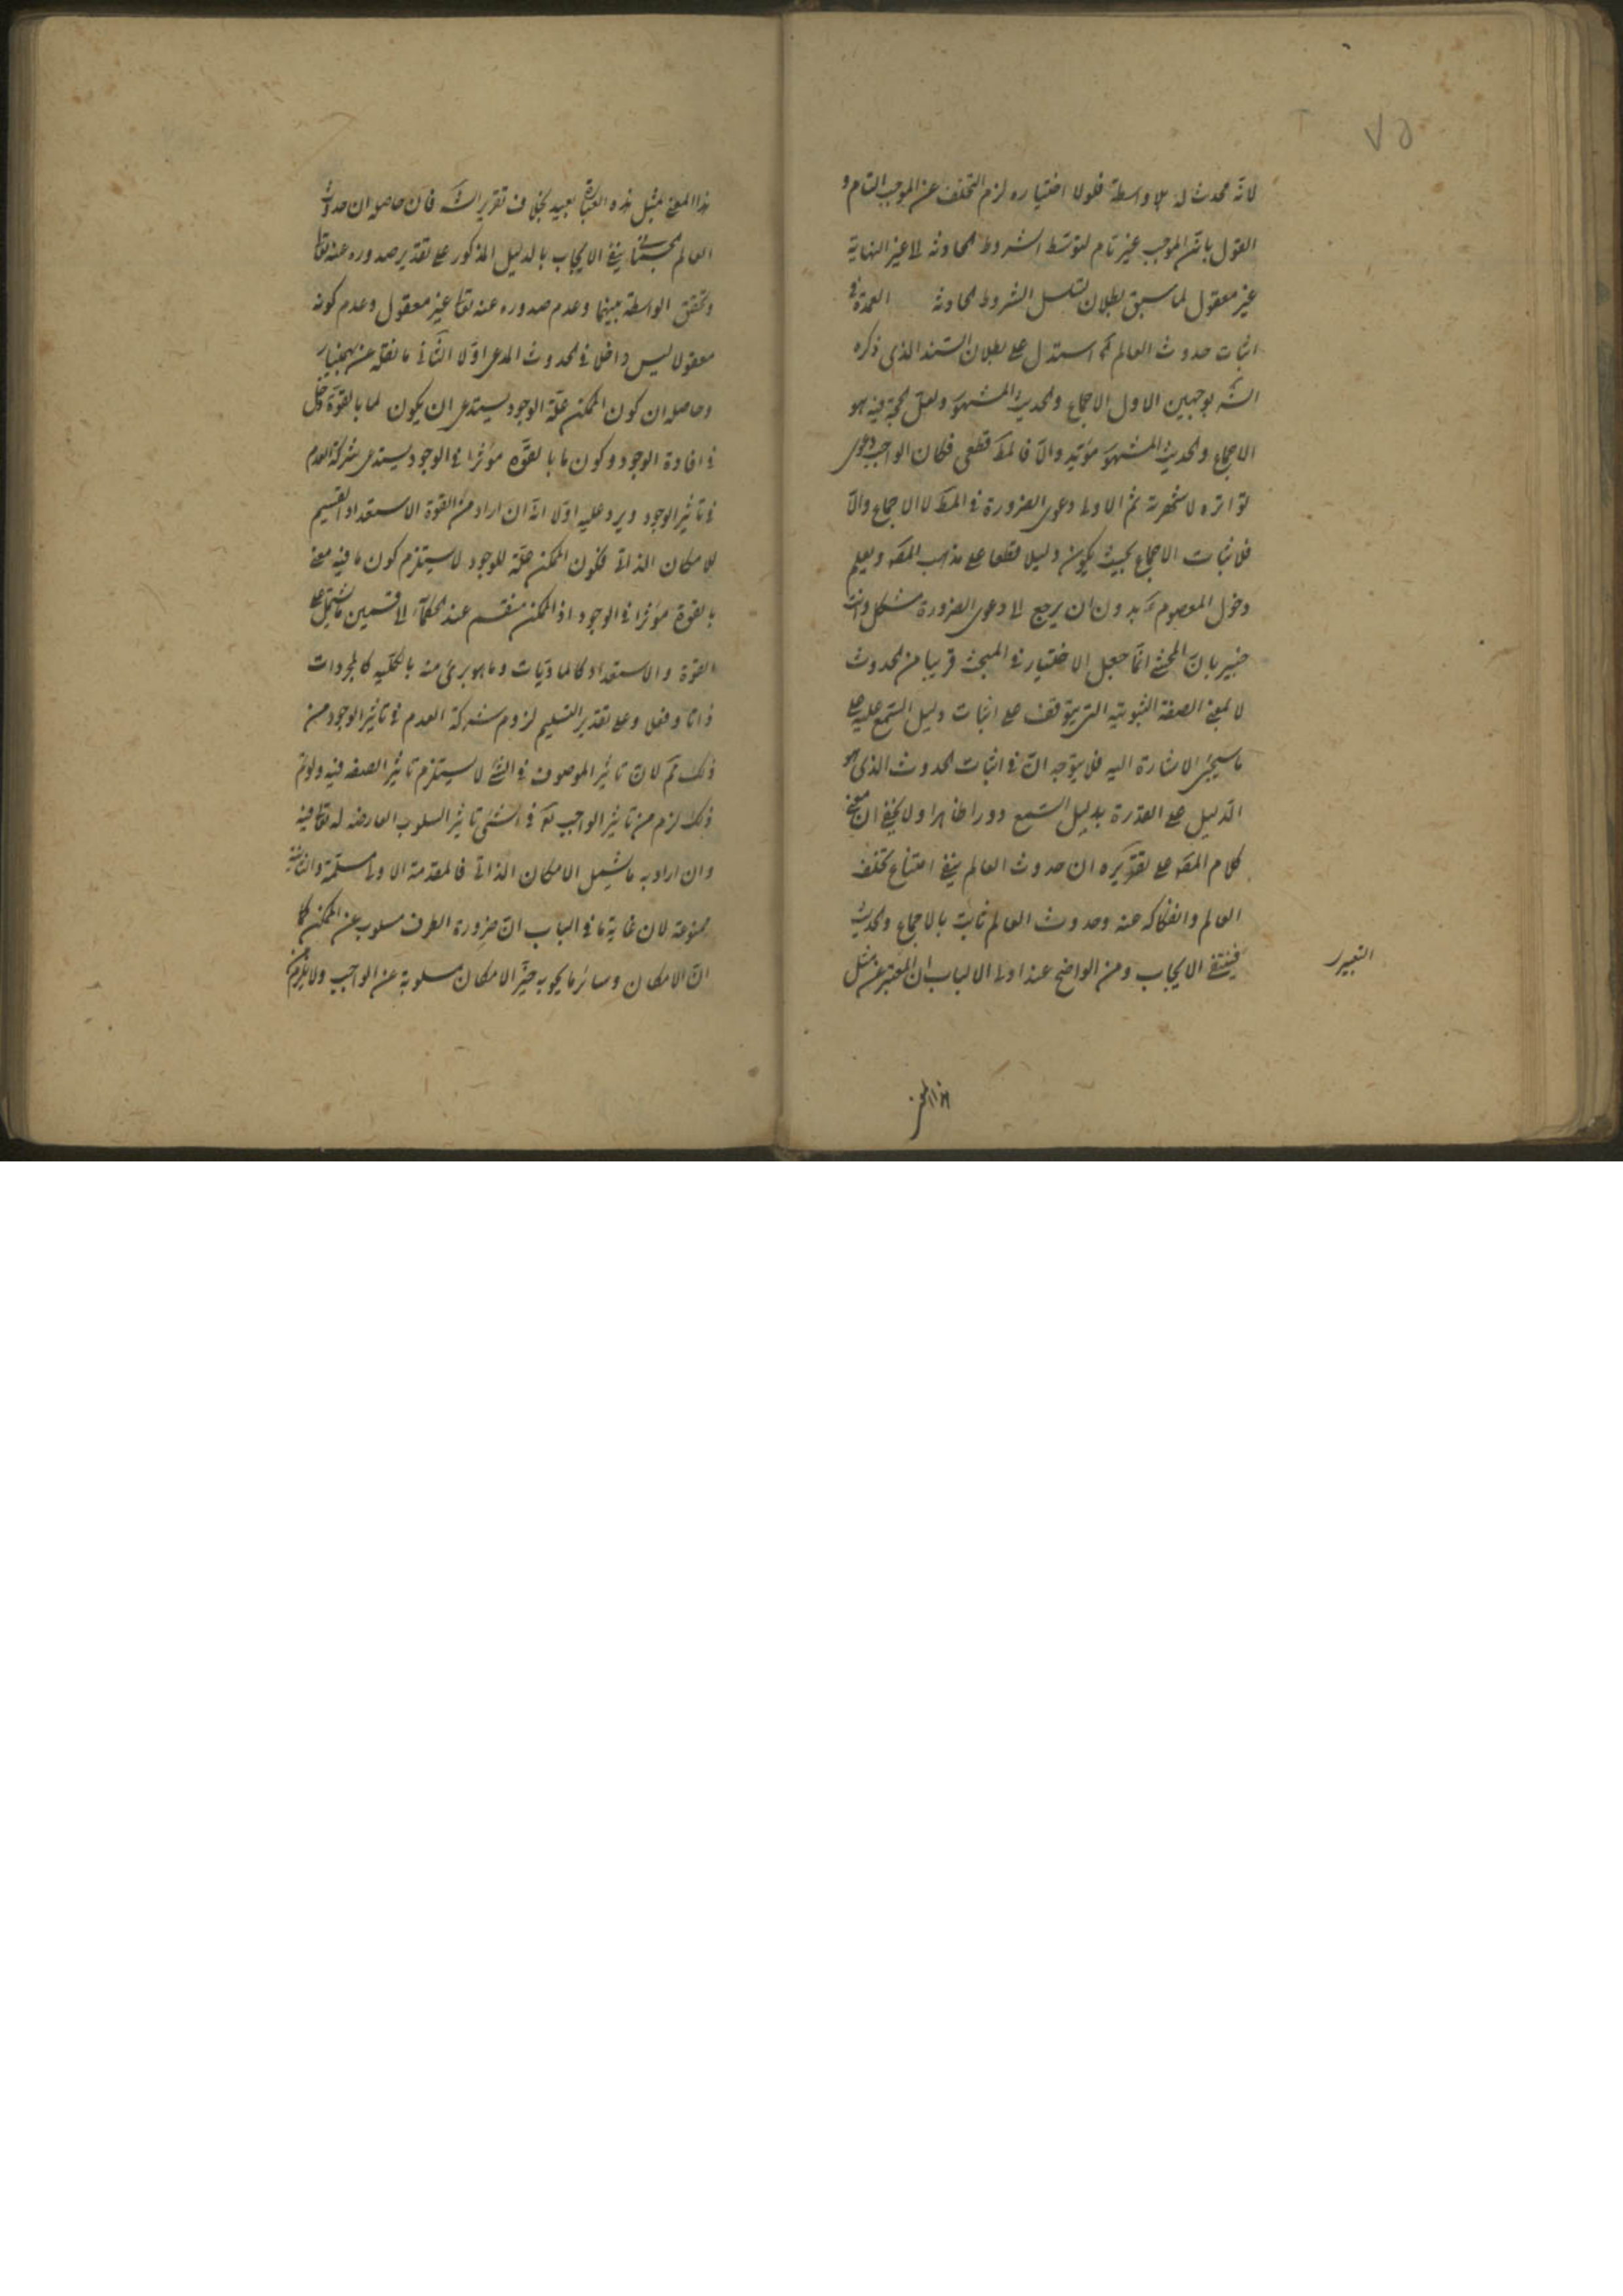 ٧٥
لانه محدث له بلا واسطة فلولا اختياره لزم التخلف عن الموجب التام و
القول بان الموجب غير تام لتوسط الشروط الحادثه الى غير النهاية
غير معقول لما سبق بطلان تسلسل الشروط الحادثه العمدة في
اثبات حدوث العالم ثم استدل على بطلان السند الذى ذكره
الشه بوجهين الاول الاجماع والحديث المشهور ولعل الحجة فيه هو
الاجماع والحديث المشهور مؤيد والا فالمط قطعى فكان الواجب دعوى
تواتره لا شهرته ثم الاولى دعوى الضرورة فى المط لا الاجماع والا
فلاثبات الاجماع بحيث يكون دليلا قطعا على مذهب المصه ويعلم
دخول المعصوم ع بدون ان يرجع الى دعوى الضرورة مشكل وانت
خبير بان المحشى انما جعل الاختيار فى المبحث قريبا من الحدوث
لا بمعنى الصفة الثبوتيه التى يتوقف على اثبات دليل السمع عليه على
ما سيجئ الاشارة اليه فلا يتوجه ان فى اثبات الحدوث الذى هو
الدليل على القدرة بدليل السمع دورا ظاهرا ولا يخفى ان معنى
كلام المصه على تقريره ان حدوث العالم ينفى امتناع تخلف
العالم وانفكاكه عنه وحدوث العالم ثابت بالاجماع والحديث
فينتفى الايجاب ومن الواضح عند اولى الالباب ان التعبير عن مثل
التعبير
هذا المعنى
هذا المعنى بمثل هذه العبارة بعيد بخلاف تقرير الشه فان حاصله ان حدوث
العالم ينفى الايجاب بالدليل المذكور على تقدير صدوره عنه تعا
وتحقق الواسطة بينهما وعدم صدوره عنه تعا غير معقول وعدم كونه
معقولا ليس داخلا فى الحدوث المدعى اولا الثانى ما نقله عن بهمنيار
وحاصله ان كون الممكن علة الوجود يستدعى ان يكون لما بالقوة دخل
فى افادة الوجود وكون ما بالقوه مؤثرا فى الوجود يستدعى شركة العدم
فى تاثير الوجود ويرد عليه اولا انه ان اراد من القوة الاستعداد القسيم
للامكان الذاتى فكون الممكن علة للوجود لا يستلزم كون ما فيه معنى
بالقوة مؤثرا فى الوجود اذ الممكن منقسم عند الحكماء الى قسمين ما يشتمل على
القوة والاستعداد كالماديات وما هو برئ منه بالكليه كالمجردات
ذاتا وفعلا وعلى تقدير التسليم لزوم شركة العدم فى تاثير الوجود من
ذلك مم لان تاثير الموصوف فى الشئ لا يستلزم تاثير الصفه فيه ولو تم
ذلك لزم من تاثير الواجب تع فى الشئ تاثير السلوب العارضه له تعا فيه
وان اراد به ما يشمل الامكان الذاتى فالمقدمة الاولى مسلمة والثانية
ممنوعة لان غاية ما فى الباب ان ضرورة الطرف مسلوب عن الممكن كما
ان الامكان وسائر ما يحويه حيز الامكان مسلوبة عن الواجب ولا يلزم من